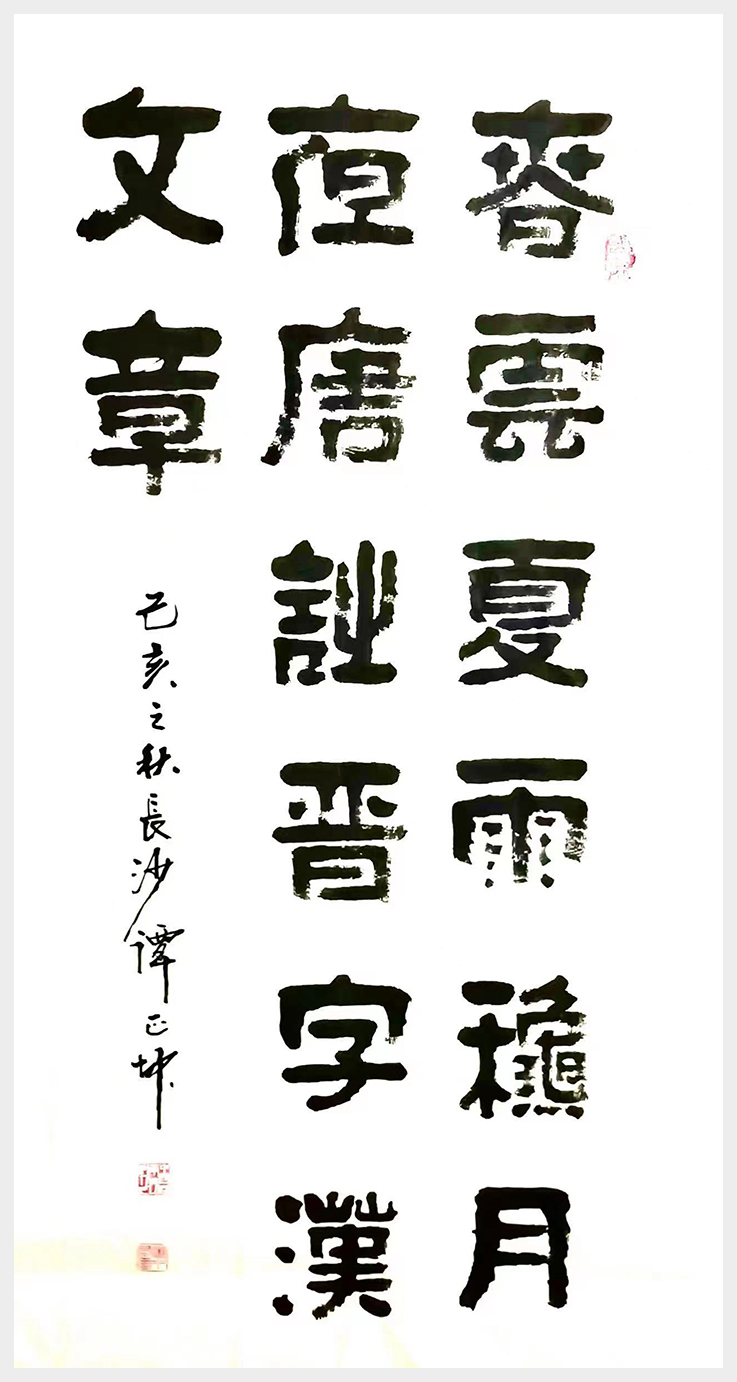 春雲夏雨穐月
夜唐詩晋字漢
文章
己亥之秋長沙譚正坤